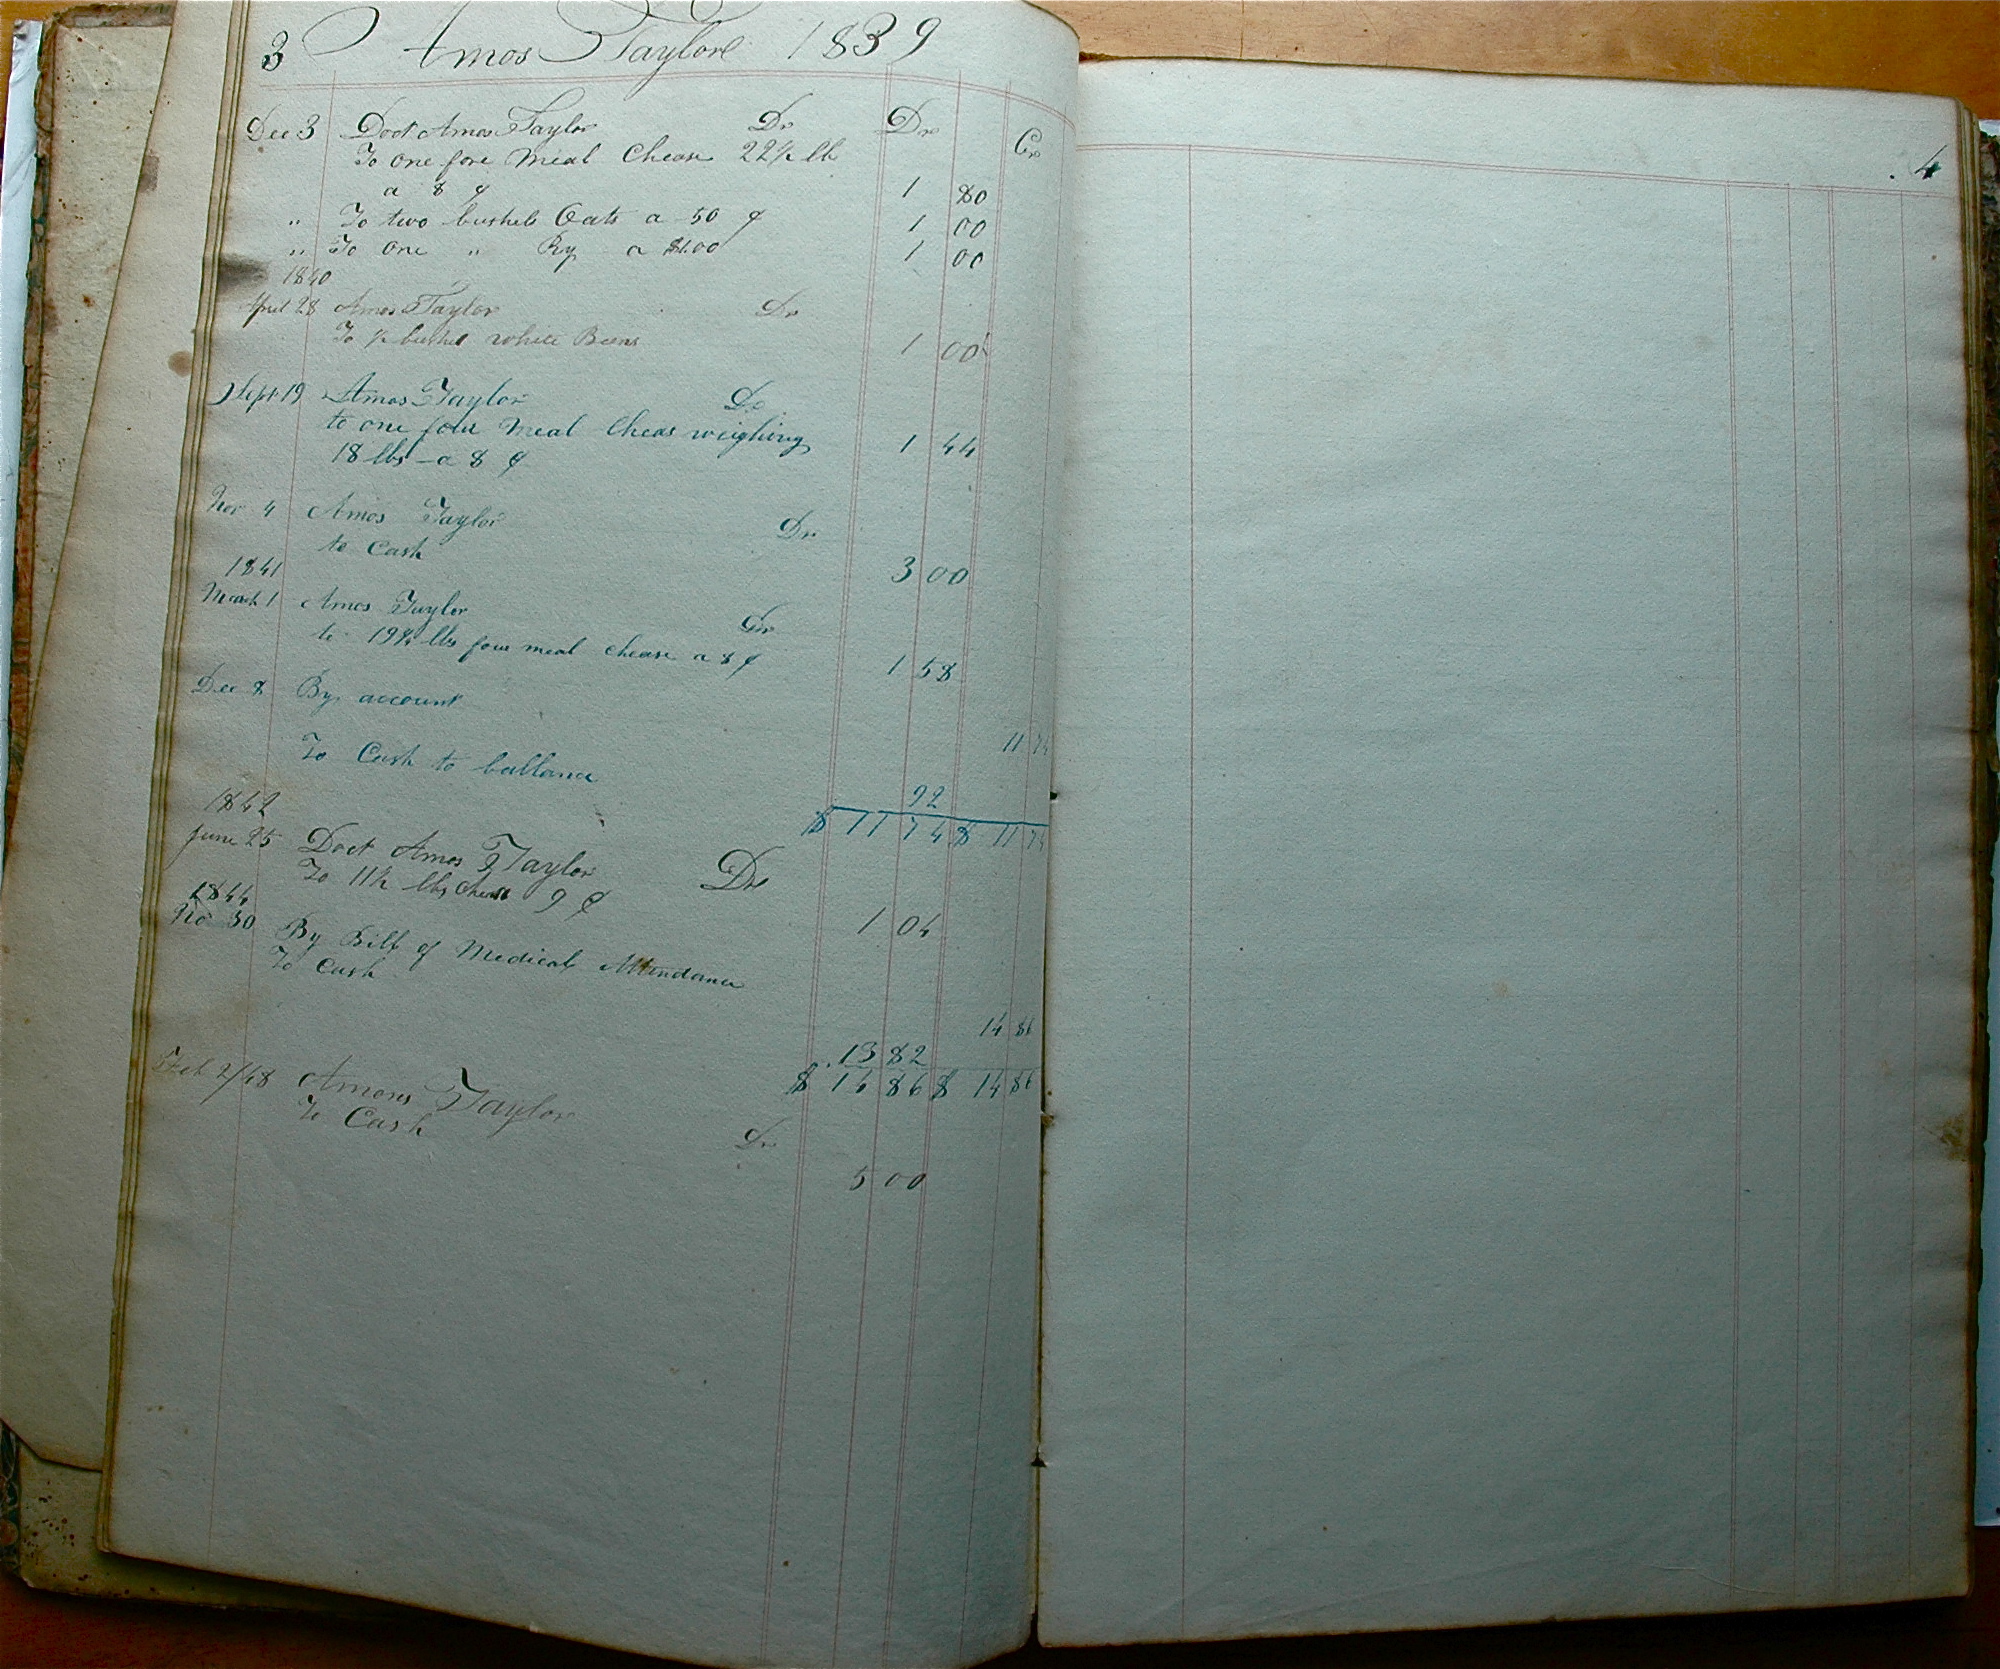 3 Amos Taylore 1839
Dr Cr
Dec 3 Doct Amos Taylor Dr
To one fore Meal Chease 22½ lb
a 8 ¢ 1 80
" To two bushels Oats a 50 ¢ 1 00
" To One " Ry a $1.00 1 00
1840
April 28 Amos Taylor Dr
To ½ bushel white Beens 1 00
Sept 19 Amos Taylor Dr
to one four Meal Cheas weighing 1 44
18 lbs a 8 ¢
Nov 4 Amos Taylor Dr
to Cash 3 00
1841
March 1 Amos Taylor Dr
to 19¾ lbs four meal chease a 8 ¢ 1 58
Dec 8 By account 11 74
To Cash to ballance 92
$ 11 74 $ 11 74
1842
June 25 Doct Amos Taylor Dr
To 11½ lbs Chease 9 ¢ 1 04
1844
No 30 By Bill of Medical Attendance 14 86
To Cash 13 82
$ 14 86 $ 14 86
Feb 2/48 Amos Taylor Dr
To Cash 5 00
4